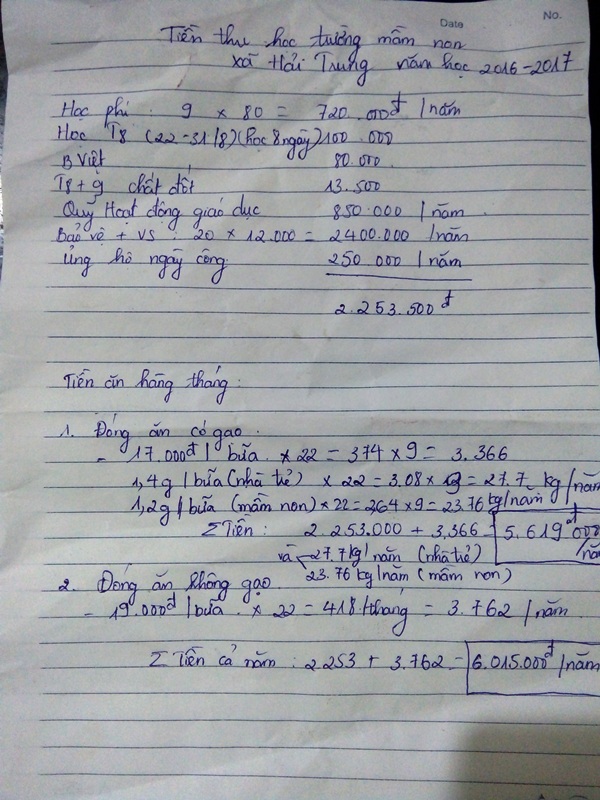 Date
No.
Tiền thu học trường mầm non
xã Hải Trung năm học 2016-2017
Học phí : 9 x 80 = 720.000đ / năm
Học T8 (22-31/8) (học 8 ngày) 100.000
B Việt 80.000
T8 + 9 chất đốt 13.500
Quỹ Hoạt động giáo dục 850.000 / năm
Bảo vệ + VS : 20 x 12.000 = 2400.000 /năm
ủng hộ ngày công: 250.000 / năm
2.253.500đ
Tiền ăn hàng tháng:
1. Đóng ăn có gạo.
- 17.000đ / bữa x 22 = 374 x 9 = 3.366
1,4g / bữa (nhà trẻ) x 22 = 3.08 x 9 = 27.7 kg/năm
1,2g / bữa (mầm non) x 22 = 264 x 9 = 23.76 kg/năm
Σ Tiền : 2.253.000 + 3,366 = 5.619.000đ/nă
và 27.7kg/ năm (nhà trẻ)
23.76 kg/năm (mầm non)
2. Đóng ăn không gạo
- 19.000đ / bữa x 22 = 418/tháng = 3.762 / năm
Σ Tiền cả năm : 2.253 + 3.762 = 6.015.000đ/năm